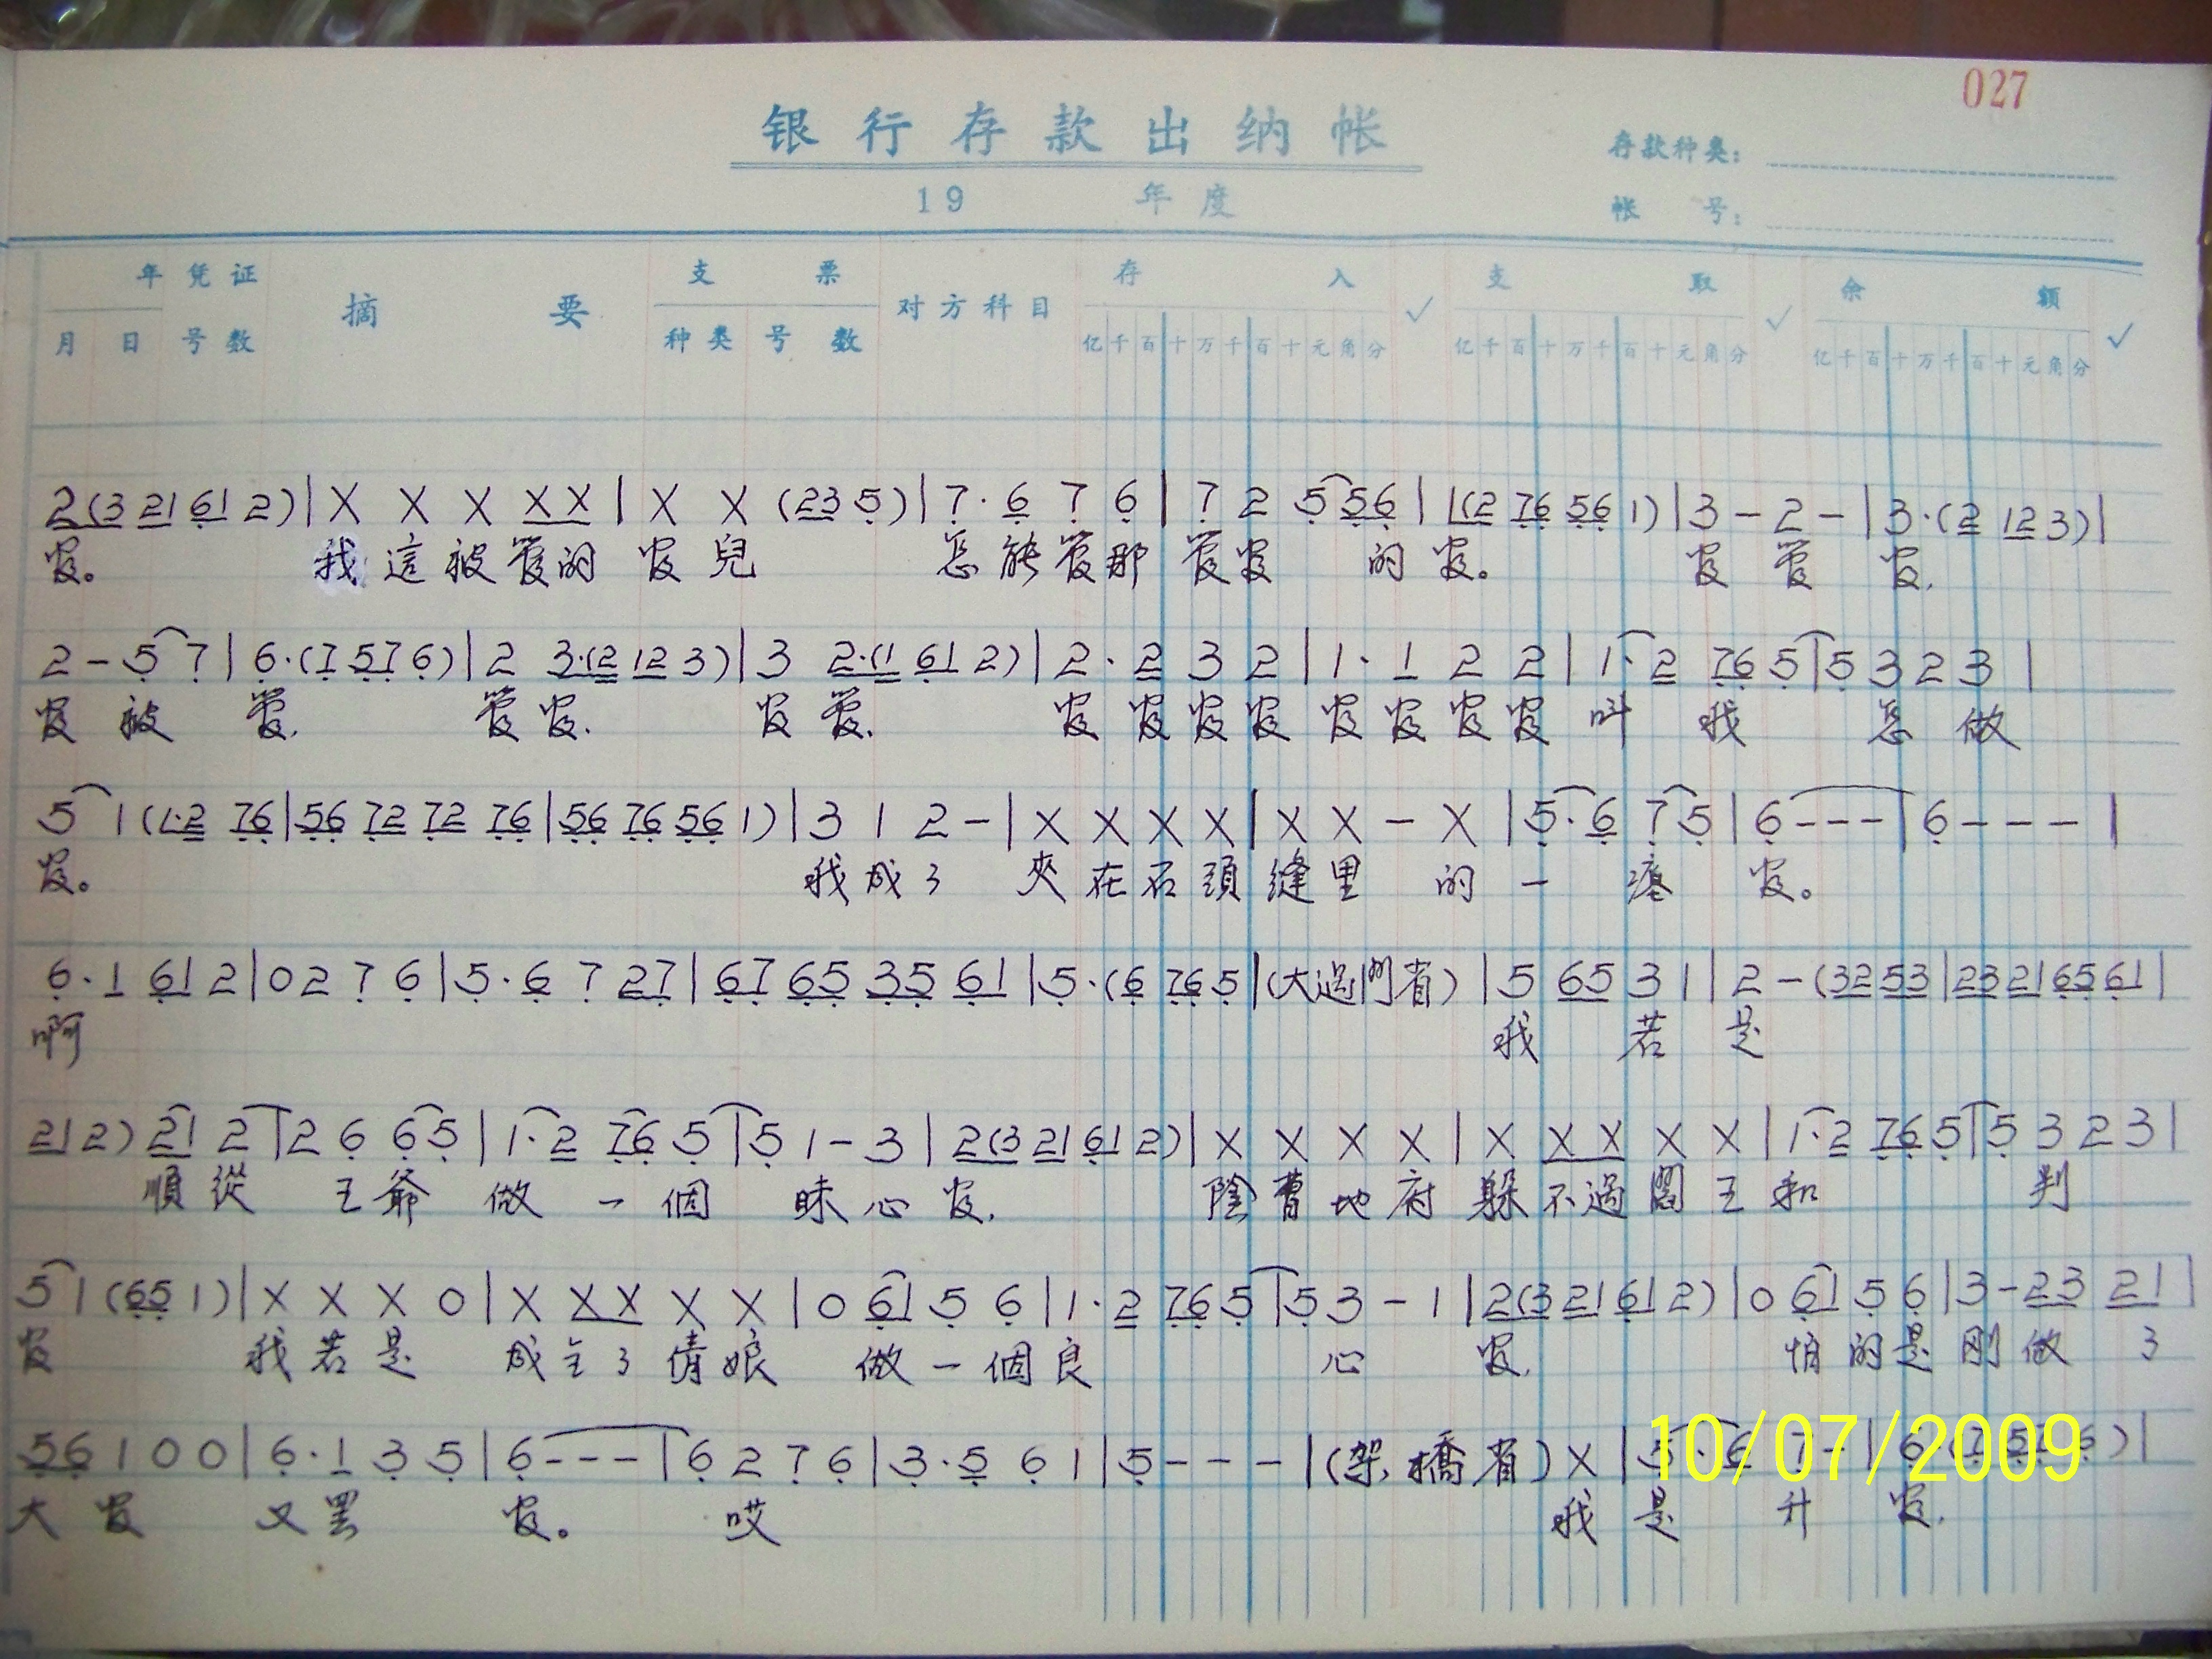 027
银行存款出纳帐
存款种类:
19 年度
帐 号:
年 凭证 摘 要 支 票 对方科目 存 入 ✓ 支 取 ✓ 余 额 ✓
月 日 号数 种类 号 数 亿千百十万千百十元角分 亿千百十万千百十元角分 亿千百十万千百十元角分
2(3 21 61 2)|X X X X X|X X (23 5)|7·6 7 6|7 2 5 56|1(2 76 56 1)|3-2-|3·(2 12 3)|
官。 我這被管的 官兒 怎能管那 管官 的官。 官管 官,
2-5 7|6·(7 57 6)|2 3·(2 12 3)|3 2·(1 61 2)|2·2 3 2|1·1 2 2|1·2 76 5|5 3 2 3|
官被 管, 管官, 官管, 官官官官 官官官官 叫 我 怎做
5 1(1·2 76|56 72 72 76|56 76 56 1)|3 1 2-|X X X X|X X-X|5·6 7 5|6---|6---|
官。 我成了 夾在石頭 縫里 的 一 癟 官。
6·1 61 2|0 2 7 6|5·6 7 27|67 65 35 61|5·(6 76 5|(大過門省)|5 65 3 1|2-(32 53|23 21 65 61|
啊 我 若 是
21 2) 21 2|2 6 6 5|1·2 76 5|5 1-3|2(3 21 61 2)|X X X X|X X X X X|1·2 76 5|5 3 2 3|
順從 王爺 做 一個 昧心 官, 陰曹地府 躲不過閻王 和 判
5 1(65 1)|X X X 0|X X X X X|0 61 5 6|1·2 76 5|5 3-1|2(3 21 61 2)|0 61 5 6|3-23 21|
官 我若是 成全了倩娘 做一個良 心 官, 怕的是 刚做 了
56 1 0 0|6·1 3 5|6---|6 2 7 6|3·5 6 1|5---|(架橋省) X|5·6 7-|6
大官 又罢 官。 哎 我 是 升 官,
10/07/2009